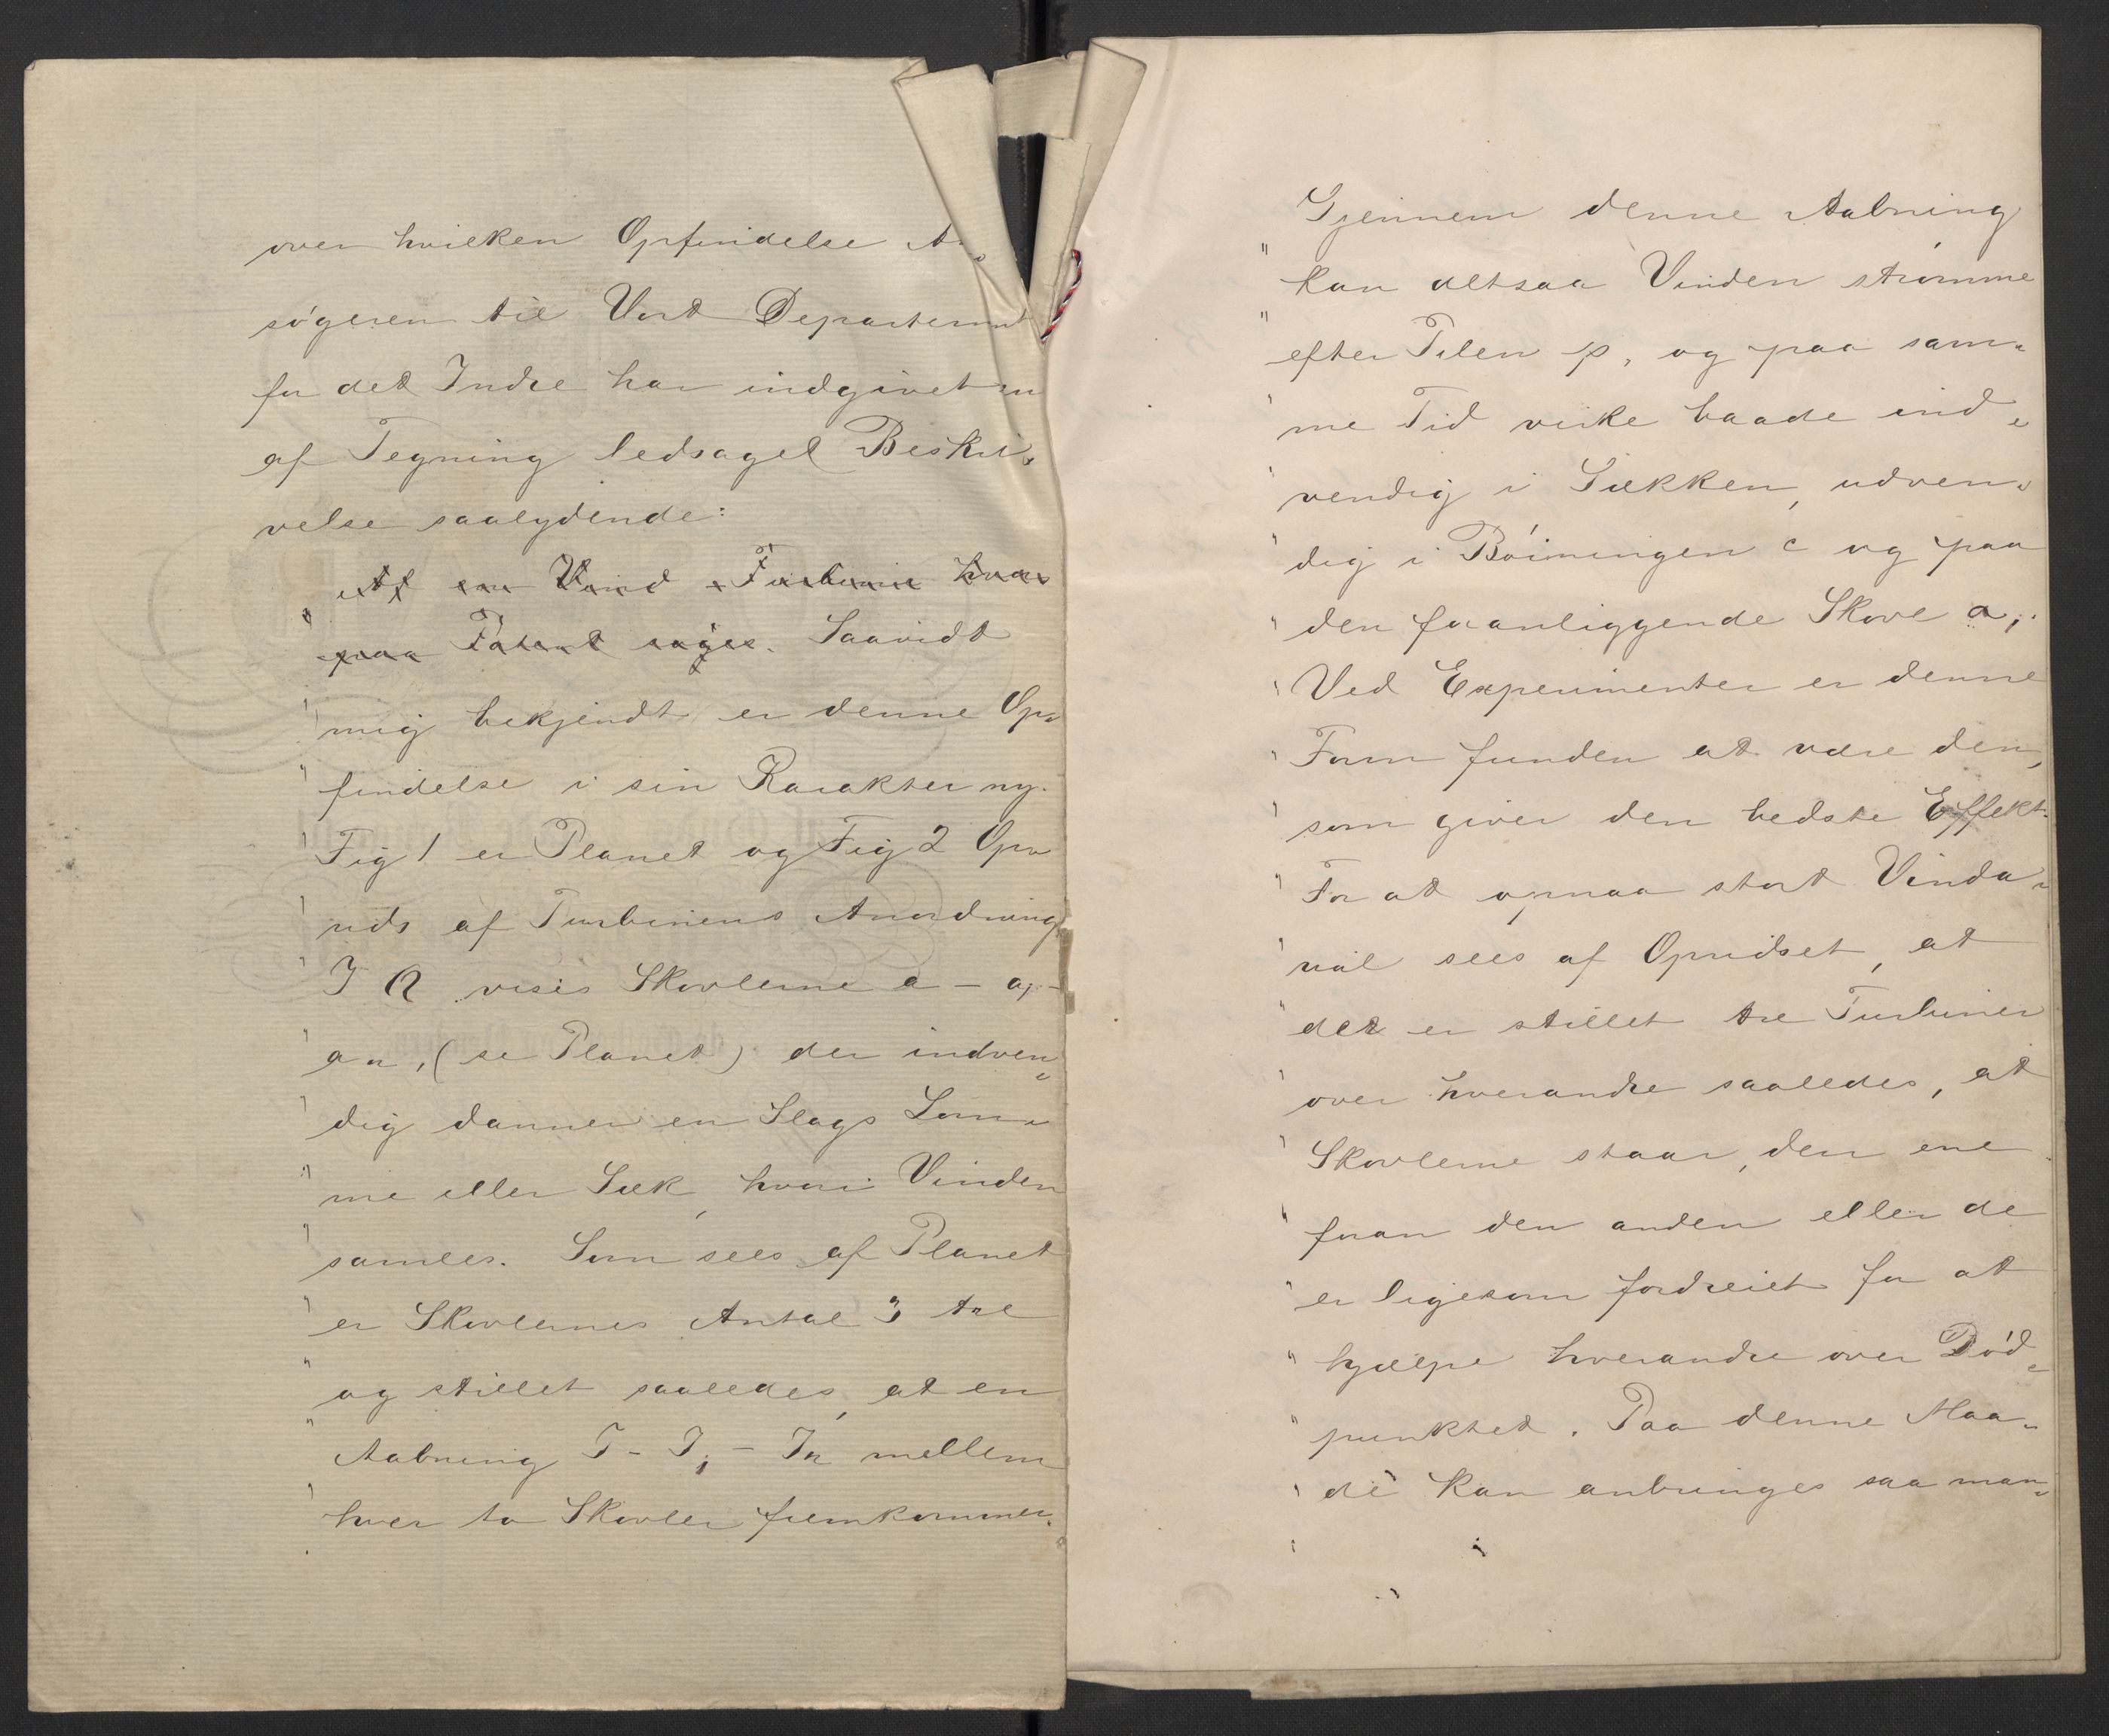 over hvilken Opfindelse An„
søgeren til Vort Departement
for det Indre har indgivet en
af Tegning ledsaget Beskri„
velse saalydende:
Af en Vind - Turbine hvor
" paa Patent søges. Saavidt
" mig bekjendt er denne Op„
" findelse i sin Karakter ny.
" Fig 1 er Planet og Fig 2 Op„
" rids af Turbinens Anordning
" I A vises Skovlerne a - a, -
" a", (se Planet) der indven„
" dig danner en Slags Lom„
" me eller Sæk, hvori Vinden
" samles. Som sees af Planet
" er Skovlernes Antal 3 tre
" og stillet saaledes, at en
" Aabning I - I, - I" mellem
" hver to Skovler fremkommer.
Gjennem denne Aabning
" kan altsaa Vinden strømme
" efter Pilen p, og paa sam„
" me Tid virke baade ind„
" vendig i Sækken, udven„
" dig i Bøiningen c og paa
" den foranliggende Skovl a,.
" Ved Experimenter er denne
" Form funden at være den,
" som giver den bedste Effekt.
" For at opnaa stort Vinda„
" real sees af Opridset, at
" der er stillet tre Turbiner
" over hverandre saaledes, at
" Skovlerne staar, den ene
" foran den anden eller de
" er ligesom fordreiet for at
" hjælpe hverandre over Død„
" punktet. Paa denne Maa„
" de kan anbringes saa man„